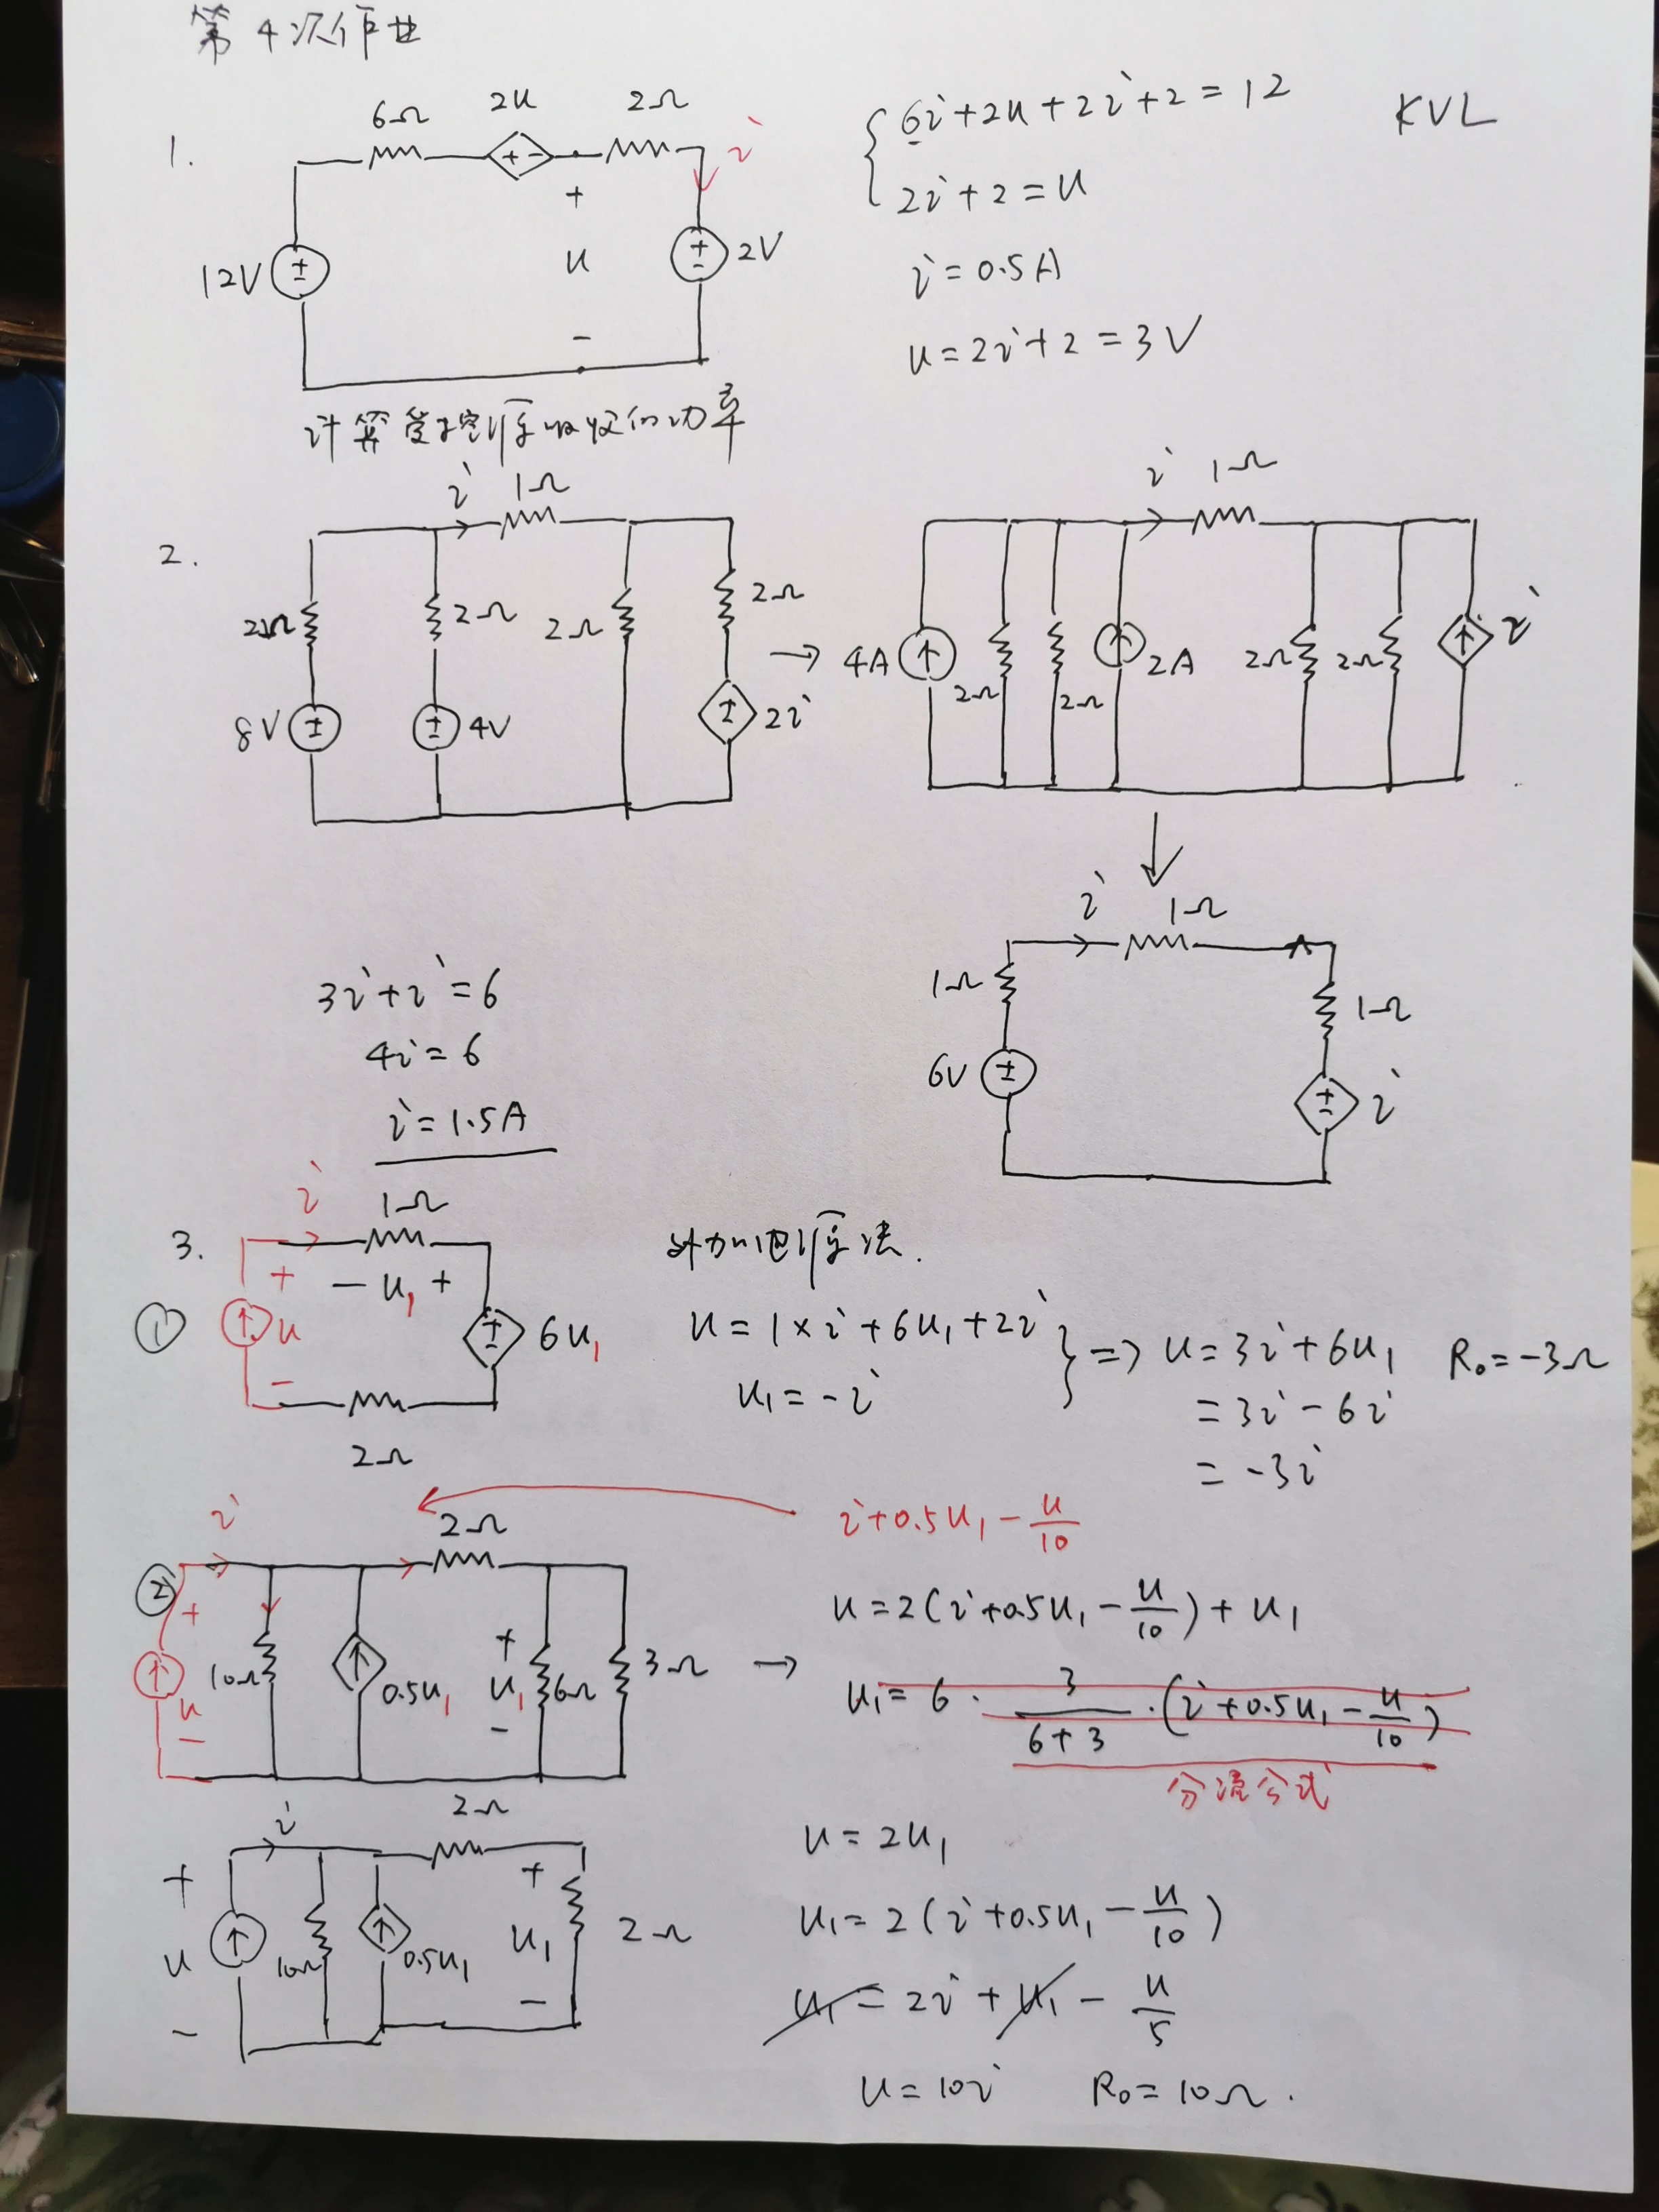 第4次作业
1.
6Ω 2u 2Ω i
12V + u − 2V
{ 6i+2u+2i+2=12 KVL
2i+2=u
i=0.5A
u=2i+2=3V
计算受控源吸收的功率
2.
i 1Ω
2Ω 2Ω 2Ω 2Ω
8V 4V 2i
→
i 1Ω
4A 2Ω 2Ω 2A 2Ω 2Ω i
↓
i 1Ω
1Ω 1Ω
6V i
3i+i=6
4i=6
i=1.5A
3.
①
i 1Ω
+ − u₁ +
u 6u₁
−
2Ω
外加电源法.
u=1×i+6u₁+2i
u₁=−i
} ⇒ u=3i+6u₁ R₀=−3Ω
=3i−6i
=−3i
②
i 2Ω
+ +
u 10Ω 0.5u₁ u₁ 6Ω 3Ω →
− −
i+0.5u₁−u/10
u=2(i+0.5u₁−u/10)+u₁
u₁=6·3/(6+3)·(i+0.5u₁−u/10)
分流公式
i 2Ω
+ +
u 10Ω 0.5u₁ u₁ 2Ω
− −
u=2u₁
u₁=2(i+0.5u₁−u/10)
u₁=2i+u₁−u/5
u=10i R₀=10Ω.